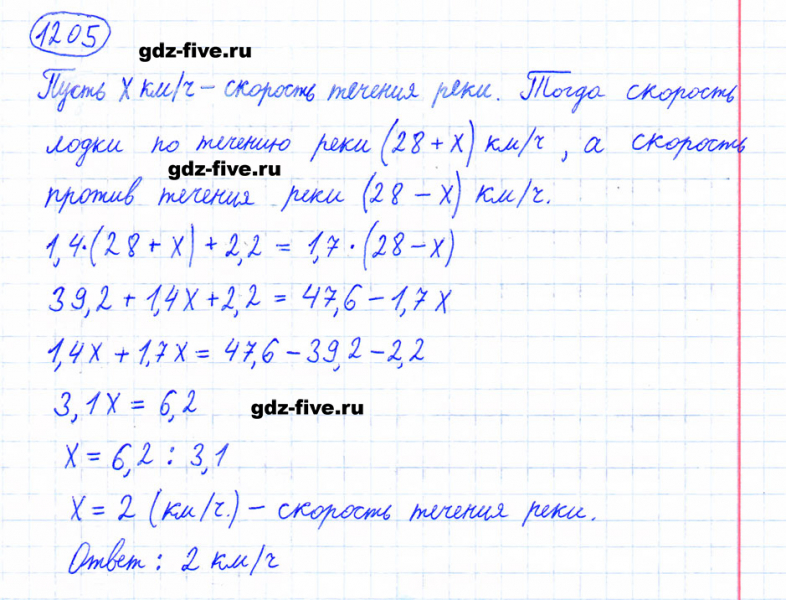 1205
gdz-five.ru
Пусть х км/ч – скорость течения реки. Тогда скорость
лодки по течению реки (28 + х) км/ч, а скорость
gdz-five.ru
против течения реки (28 – х) км/ч.
1,4·(28 + х) + 2,2 = 1,7·(28 – х)
39,2 + 1,4х + 2,2 = 47,6 – 1,7х
1,4х + 1,7х = 47,6 – 39,2 – 2,2
3,1х = 6,2
gdz-five.ru
х = 6,2 : 3,1
х = 2 (км/ч.) – скорость течения реки.
Ответ: 2 км/ч